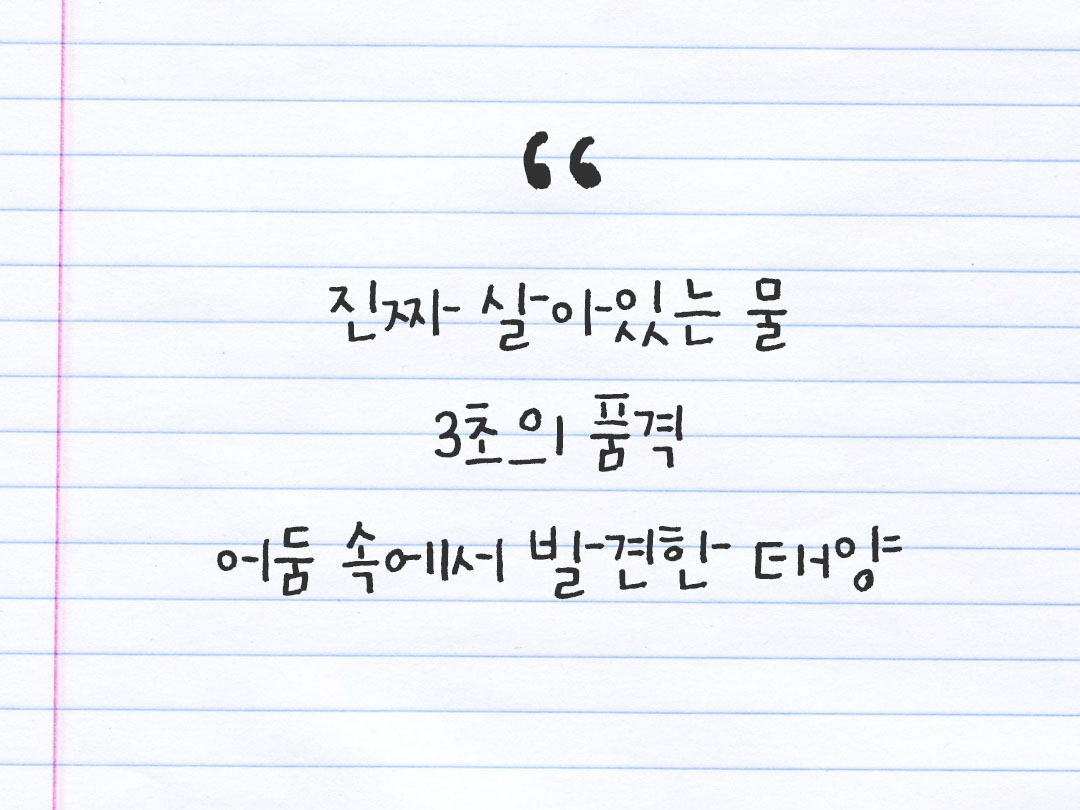 “
진짜 살아있는 물
3초의 품격
어둠 속에서 발견한 태양